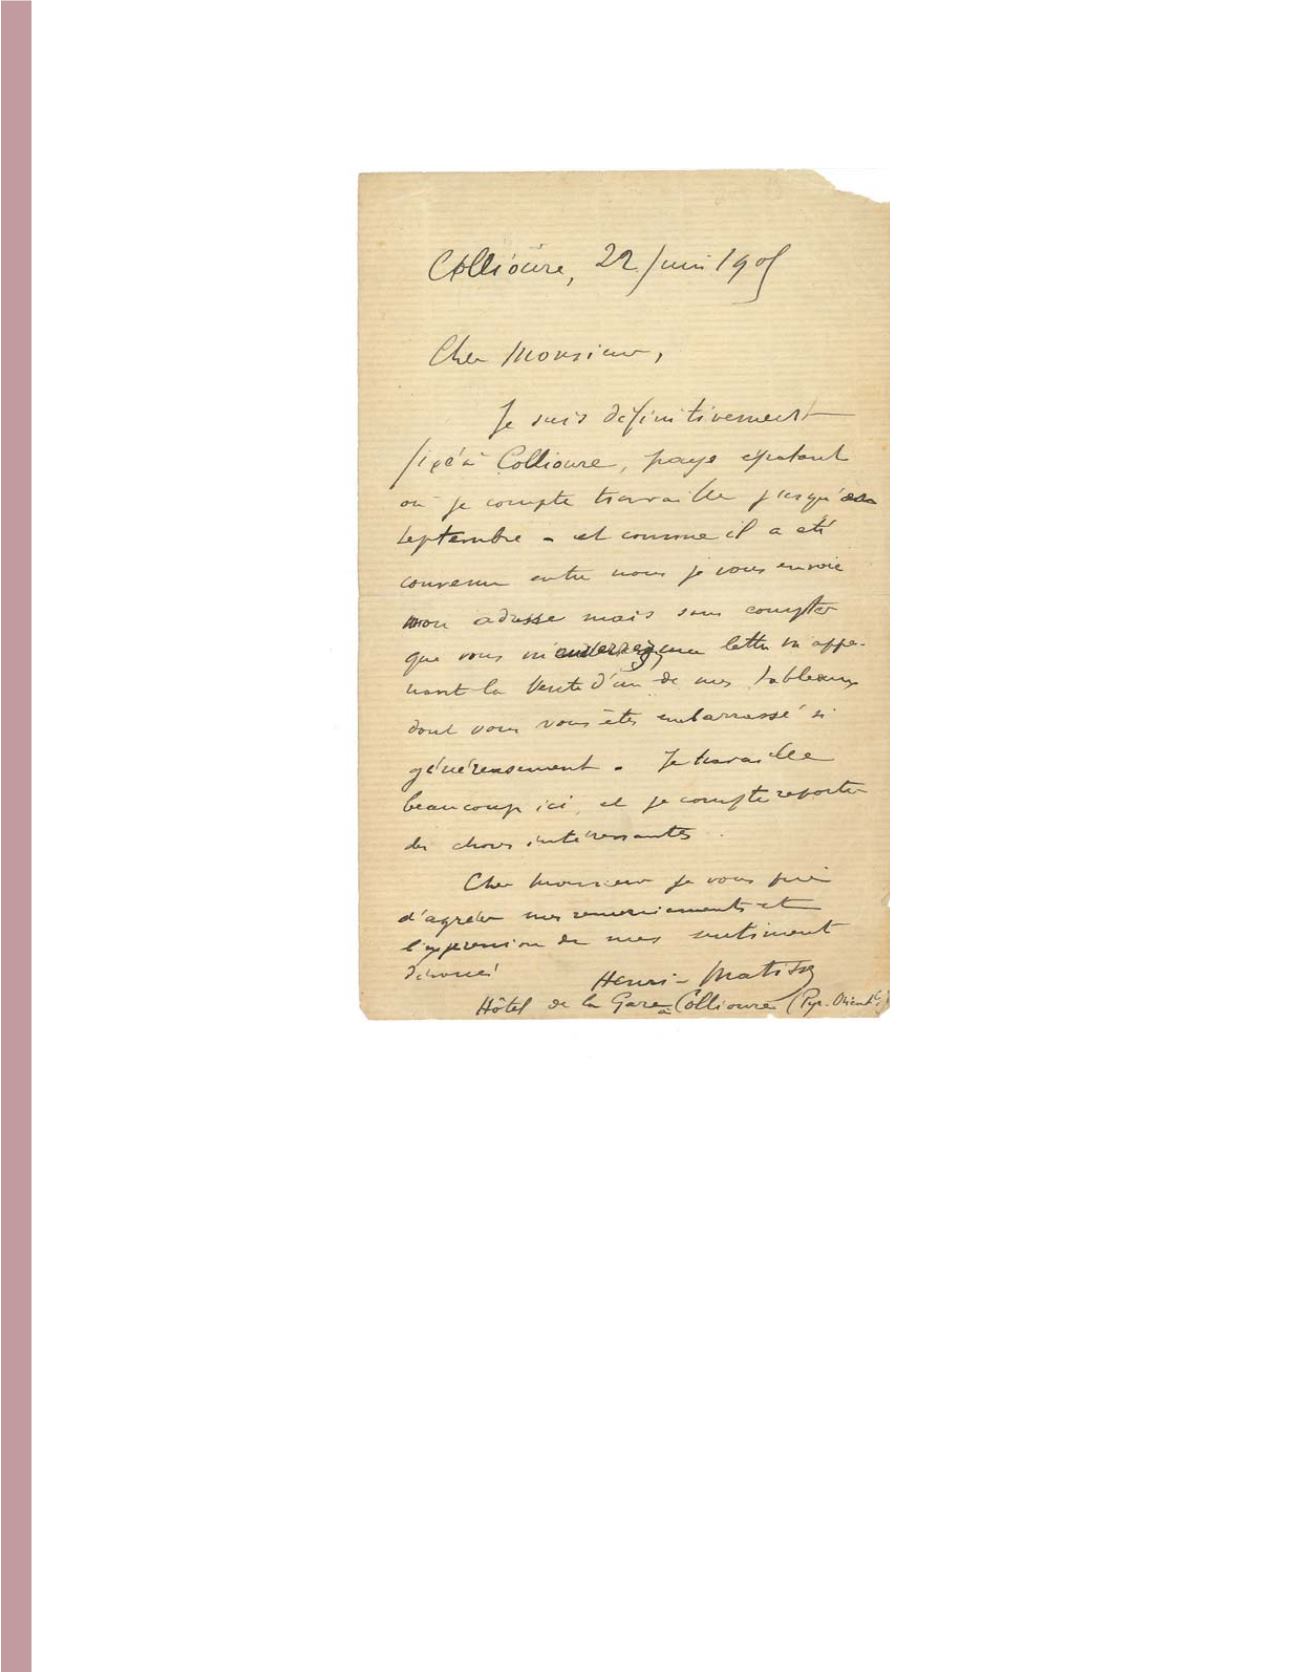 Collioure, 22 Juin 1905
Cher Monsieur,
Je suis définitivement
fixé à Collioure, pays épatant
où je compte travailler jusqu'en
septembre - et comme il a été
convenu entre nous je vous envoie
mon adresse mais sans compter
que vous m'enverrez une lettre m'appre-
nant la vente d'un de mes tableaux
dont vous vous êtes embarrassé si
généreusement - Je travaille
beaucoup ici, et je compte reporter
des choses intéressantes.
Cher Monsieur je vous prie
d'agréer mes remerciements et
l'expression de mes sentiment
dévoués
Henri-Matisse
Hôtel de la Gare à Collioure (Pyr. Orient.)